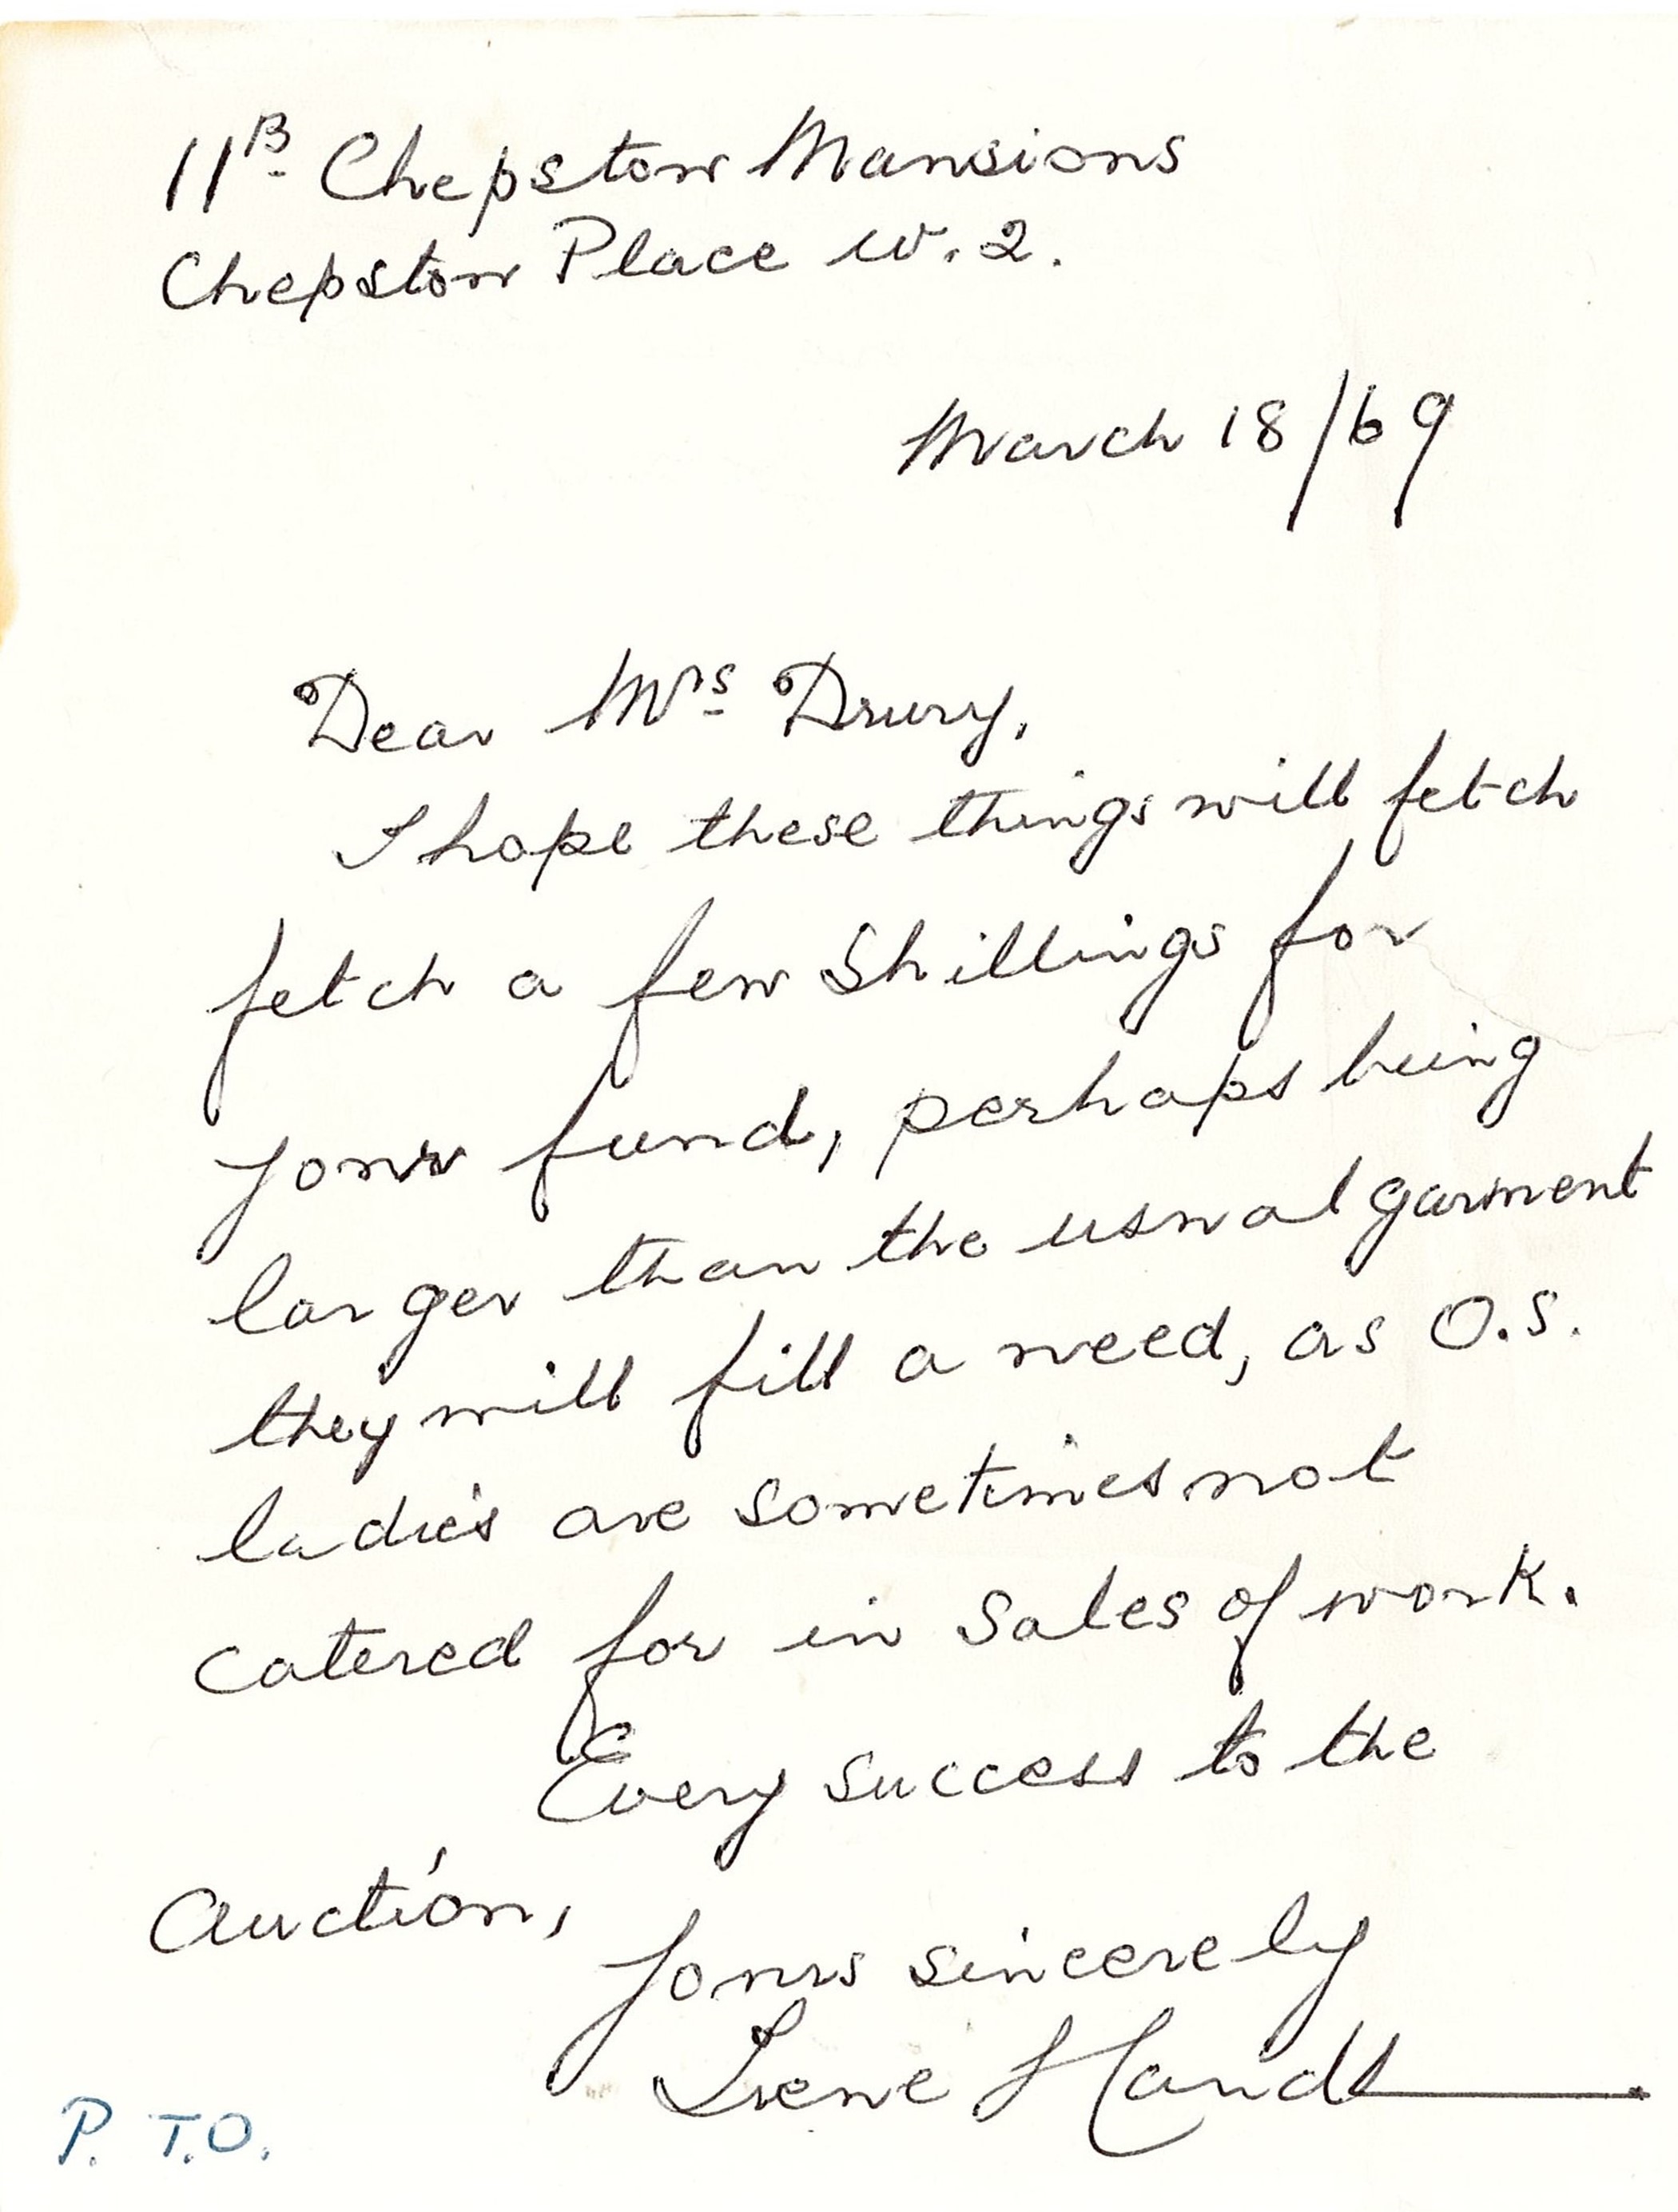 11B Chepstow Mansions
Chepstow Place W.2.
March 18/69
Dear Mrs Drury,
I hope these things will fetch
fetch a few Shillings for
your fund, perhaps being
larger than the usual garment
they will fill a need, as O.S.
ladies are sometimes not
catered for in Sales of work.
Every success to the
Auction,
Yours sincerely
Irene Handl
P. T.O.